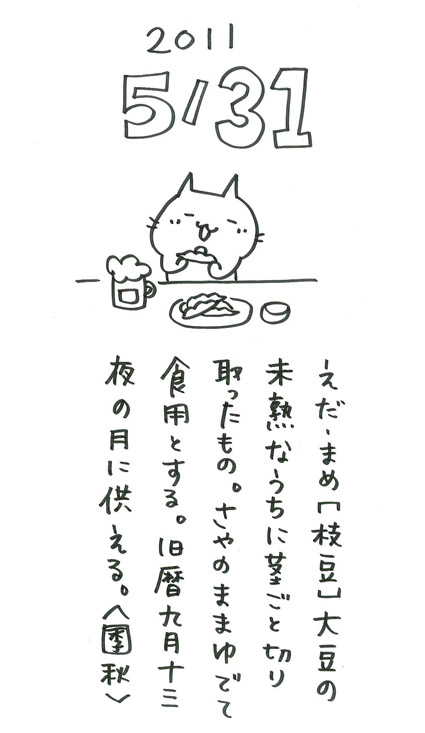 2011
5/31
えだ-まめ［枝豆］大豆の
未熟なうちに茎ごと切り
取ったもの。さやのままゆでて
食用とする。旧暦九月十三
夜の月に供える。〈季秋〉